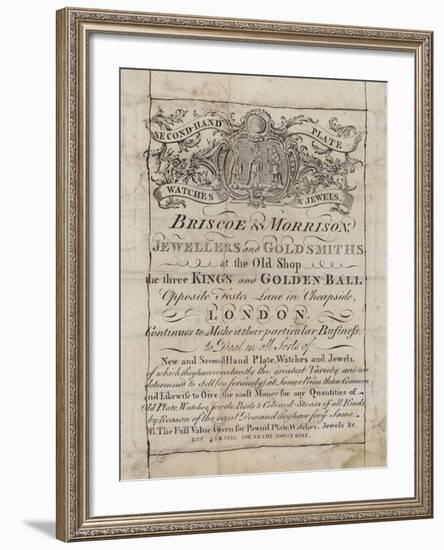 SECOND HAND PLATE
WATCHES & JEWELS.
BRISCOE & MORRISON,
JEWELLERS and GOLDSMITHS
at the Old Shop
the three KINGS and GOLDEN BALL
Opposite Foster Lane in Cheapside,
LONDON.
Continues to Make it their particular Business,
to Deal in all Sorts of
New and Second Hand Plate, Watches and Jewels,
of which they have constantly the greatest Variety and are
determin'd to Sell (as formerly) at Lower Prices than Common
and Likewise to Give the most Money for any Quantities of
Old Plate, Watches, Jewels, Pearls & Colour'd Stones of all Kinds
by Reason of the great Demand they have for y.e Same
NB. The Full Value Given for Pawn'd Plate, Watches, Jewels &c.
FOR READY MONEY ONLY.